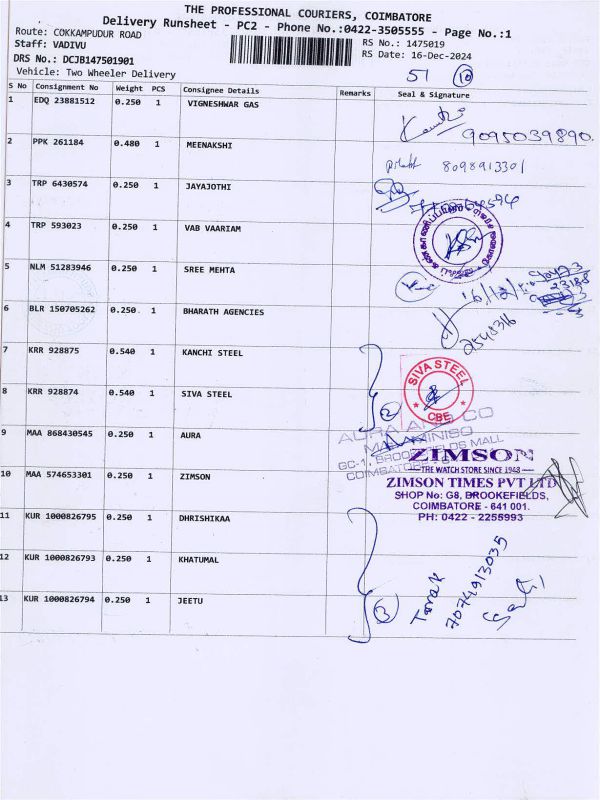 THE PROFESSIONAL COURIERS, COIMBATORE
Delivery Runsheet - PC2 - Phone No.:0422-3505555 - Page No.:1
Route: COKKAMPUDUR ROAD
RS No.: 1475019
Staff: VADIVU
RS Date: 16-Dec-2024
DRS No.: DCJB147501901
Vehicle: Two Wheeler Delivery
51 10
S No Consignment No Weight PCS Consignee Details Remarks Seal & Signature
1 EDQ 23881512 0.250 1 VIGNESHWAR GAS
9095039890.
2 PPK 261184 0.480 1 MEENAKSHI
8098913301
3 TRP 6430574 0.250 1 JAYAJOTHI
4 TRP 593023 0.250 1 VAB VAARIAM
5 NLM 51283946 0.250 1 SREE MEHTA
6 BLR 150705262 0.250 1 BHARATH AGENCIES
2548316
7 KRR 928875 0.540 1 KANCHI STEEL
8 KRR 928874 0.540 1 SIVA STEEL
2
SIVA STEEL
CBE
9 MAA 868430545 0.250 1 AURA
AURA AND CO
GC-1, BROOKEFIELDS MALL
COIMBATORE
10 MAA 574653301 0.250 1 ZIMSON
ZIMSON
THE WATCH STORE SINCE 1948
ZIMSON TIMES PVT LTD
SHOP No: G8, BROOKEFIELDS,
COIMBATORE - 641 001.
PH: 0422 - 2255993
11 KUR 1000826795 0.250 1 DHRISHIKAA
12 KUR 1000826793 0.250 1 KHATUMAL
13 KUR 1000826794 0.250 1 JEETU
3
7074913035